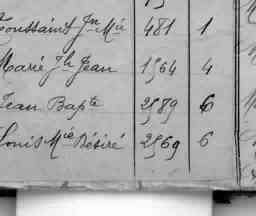 Toussaint Jn Mie 481 1
Marie Jh Jean 1564 4
Jean Bapte 2589 6
Louis Mie Désiré 2569 6